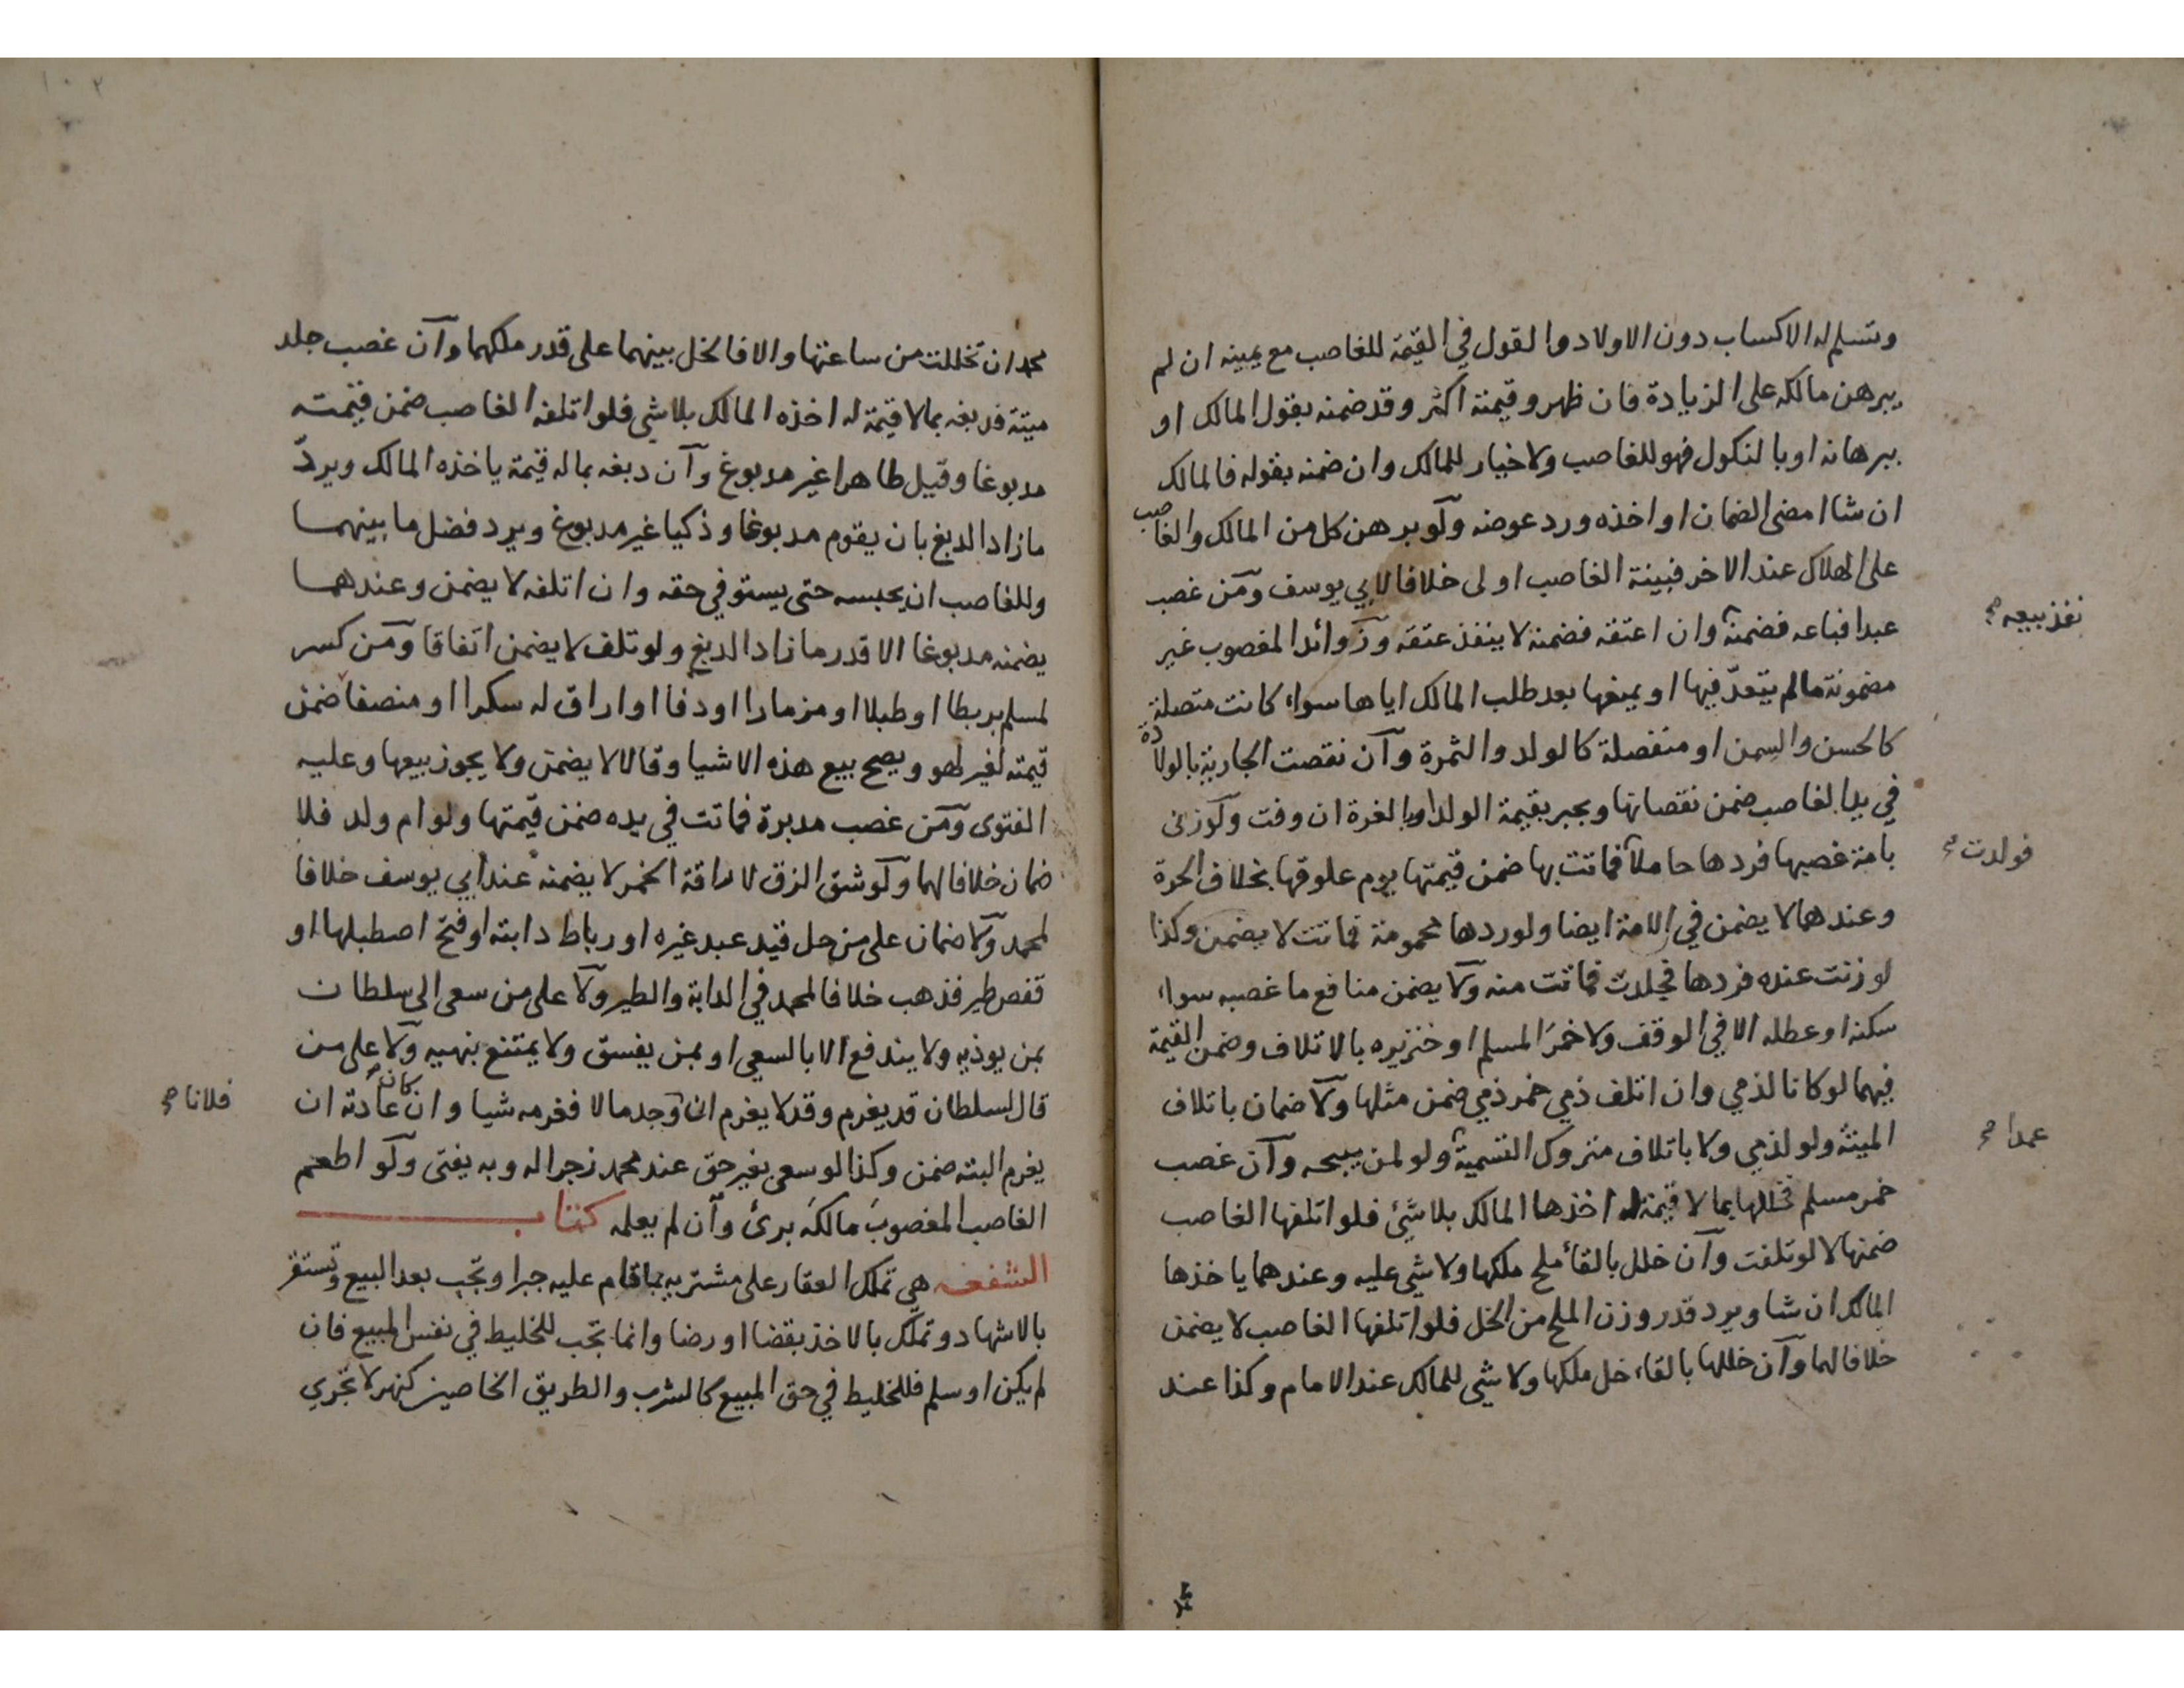 وتسلم له الاكساب دون الاولاد والقول في القيمة للغاصب مع يمينه ان لم
يبرهن مالكه على الزيادة فان ظهر وقيمته اكثر وقد ضمنه بقول المالك او
ببرهانه او بالنكول فهو للغاصب ولا خيار للمالك وان ضمنه بقوله فالمالك
ان شا امضى الضمان او اخذه ورد عوضه ولو برهن كل من المالك والغاصب
على الهلاك عند الاخر فبينة الغاصب اولى خلافا لابي يوسف ومن غصب
عبدا فباعه فضمنه وان اعتقه فضمنه لا ينفذ عتقه وزوائد المغصوب غير
نفذ بيعه صح
مضمونة مالم يتعدّ فيها او يمنعها بعد طلب المالك اياها سواء كانت متصلة
كالحسن والسمن او منفصلة كالولد والثمرة وان نقصت الجارية بالولادة
في يد الغاصب ضمن نقصانها ويجبر بقيمة الولد او بالغرة ان وفت ولو زنى
بامة غصبها فردها حاملا فماتت بها ضمن قيمتها يوم علوقها بخلاف الحرة
فولدت صح
وعندهما لا يضمن في الامة ايضا ولو ردها محمومة فماتت لا يضمن وكذا
لو زنت عنده فردها فجلدت فماتت منه ولا يضمن منافع ما غصبه سواء
سكنه او عطله الا في الوقف ولا خمرَ المسلم او خنزيره بالاتلاف وضمن القيمة
فيهما لو كانا لذمي وان اتلف ذمي خمر ذمي ضمن مثلها ولا ضمان باتلاف
الميتة ولو لذمي ولا باتلاف متروك التسمية ولو لمن يبيحه وان غصب
عمدا صح
خمر مسلم فخللها بما لا قيمة له اخذها المالك بلا شئ فلو اتلفها الغاصب
ضمنها لا لو تلفت وان خلل بالقأ ملح ملكها ولا شي عليه وعندهما ياخذها
المالك ان شا ويرد قدر وزن الملح من الخل فلو اتلفها الغاصب لا يضمن
خلافا لهما وان خللها بالقاء خل ملكها ولا شي للمالك عند الامام وكذا عند
١٠٢
محمد ان تخللت من ساعتها والا فالخل بينهما على قدر ملكهما وان غصب جلد
ميتة فدبغه بمالا قيمة له اخذه المالك بلا شي فلو اتلفه الغاصب ضمن قيمته
مدبوغا وقيل طاهرا غير مدبوغ وان دبغه بماله قيمة ياخذه المالك ويردّ
مازاد الدبغ بان يقوم مدبوغا وذكيا غير مدبوغ ويرد فضل ما بينهما
وللغاصب ان يحبسه حتى يستوفي حقه وان اتلفه لا يضمن وعندهما
يضمنه مدبوغا الا قدر مازاد الدبغ ولو تلف لا يضمن اتفاقا ومن كسر
لمسلم بربطا او طبلا او مزمارا او دفا او اراق له سكرا او منصفا ضمن
قيمته لغير لهو ويصح بيع هذه الاشيا وقالا لا يضمن ولا يجوز بيعها وعليه
الفتوى ومن غصب مدبرة فماتت في يده ضمن قيمتها ولو ام ولد فلا
ضمان خلافا لهما ولو شق الزق لاراقة الخمر لا يضمنه عند ابي يوسف خلافا
لمحمد ولا ضمان على من حل قيد عبد غيره او رباط دابته او فتح اصطبلها او
قفص طير فذهب خلافا لمحمد في الدابة والطير ولا على من سعى الى سلطان
بمن يوذيه ولا يندفع الا بالسعي او بمن يفسق ولا يمتنع بنهيه ولا على من
قال لسلطان قد يغرم وقد لا يغرم ان وجد مالا فغرمه شيا وان كان عادته ان
فلانا صح
يغرم البته ضمن وكذا لو سعى بغير حق عند محمد زجرا له وبه يفتى ولو اطعم
الغاصب المغصوبَ مالكَه برئ وان لم يعلمه كتاب
الشفعه هي تملك العقار على مشتريه بماقام عليه جبرا وتجب بعد البيع وتستقر
بالاشهاد وتملك بالاخذ بقضا او رضا وانما تجب للخليط في نفس المبيع فان
لم يكن او سلم فللخليط في حق المبيع كالشرب والطريق الخاصين كنهر لا تجري